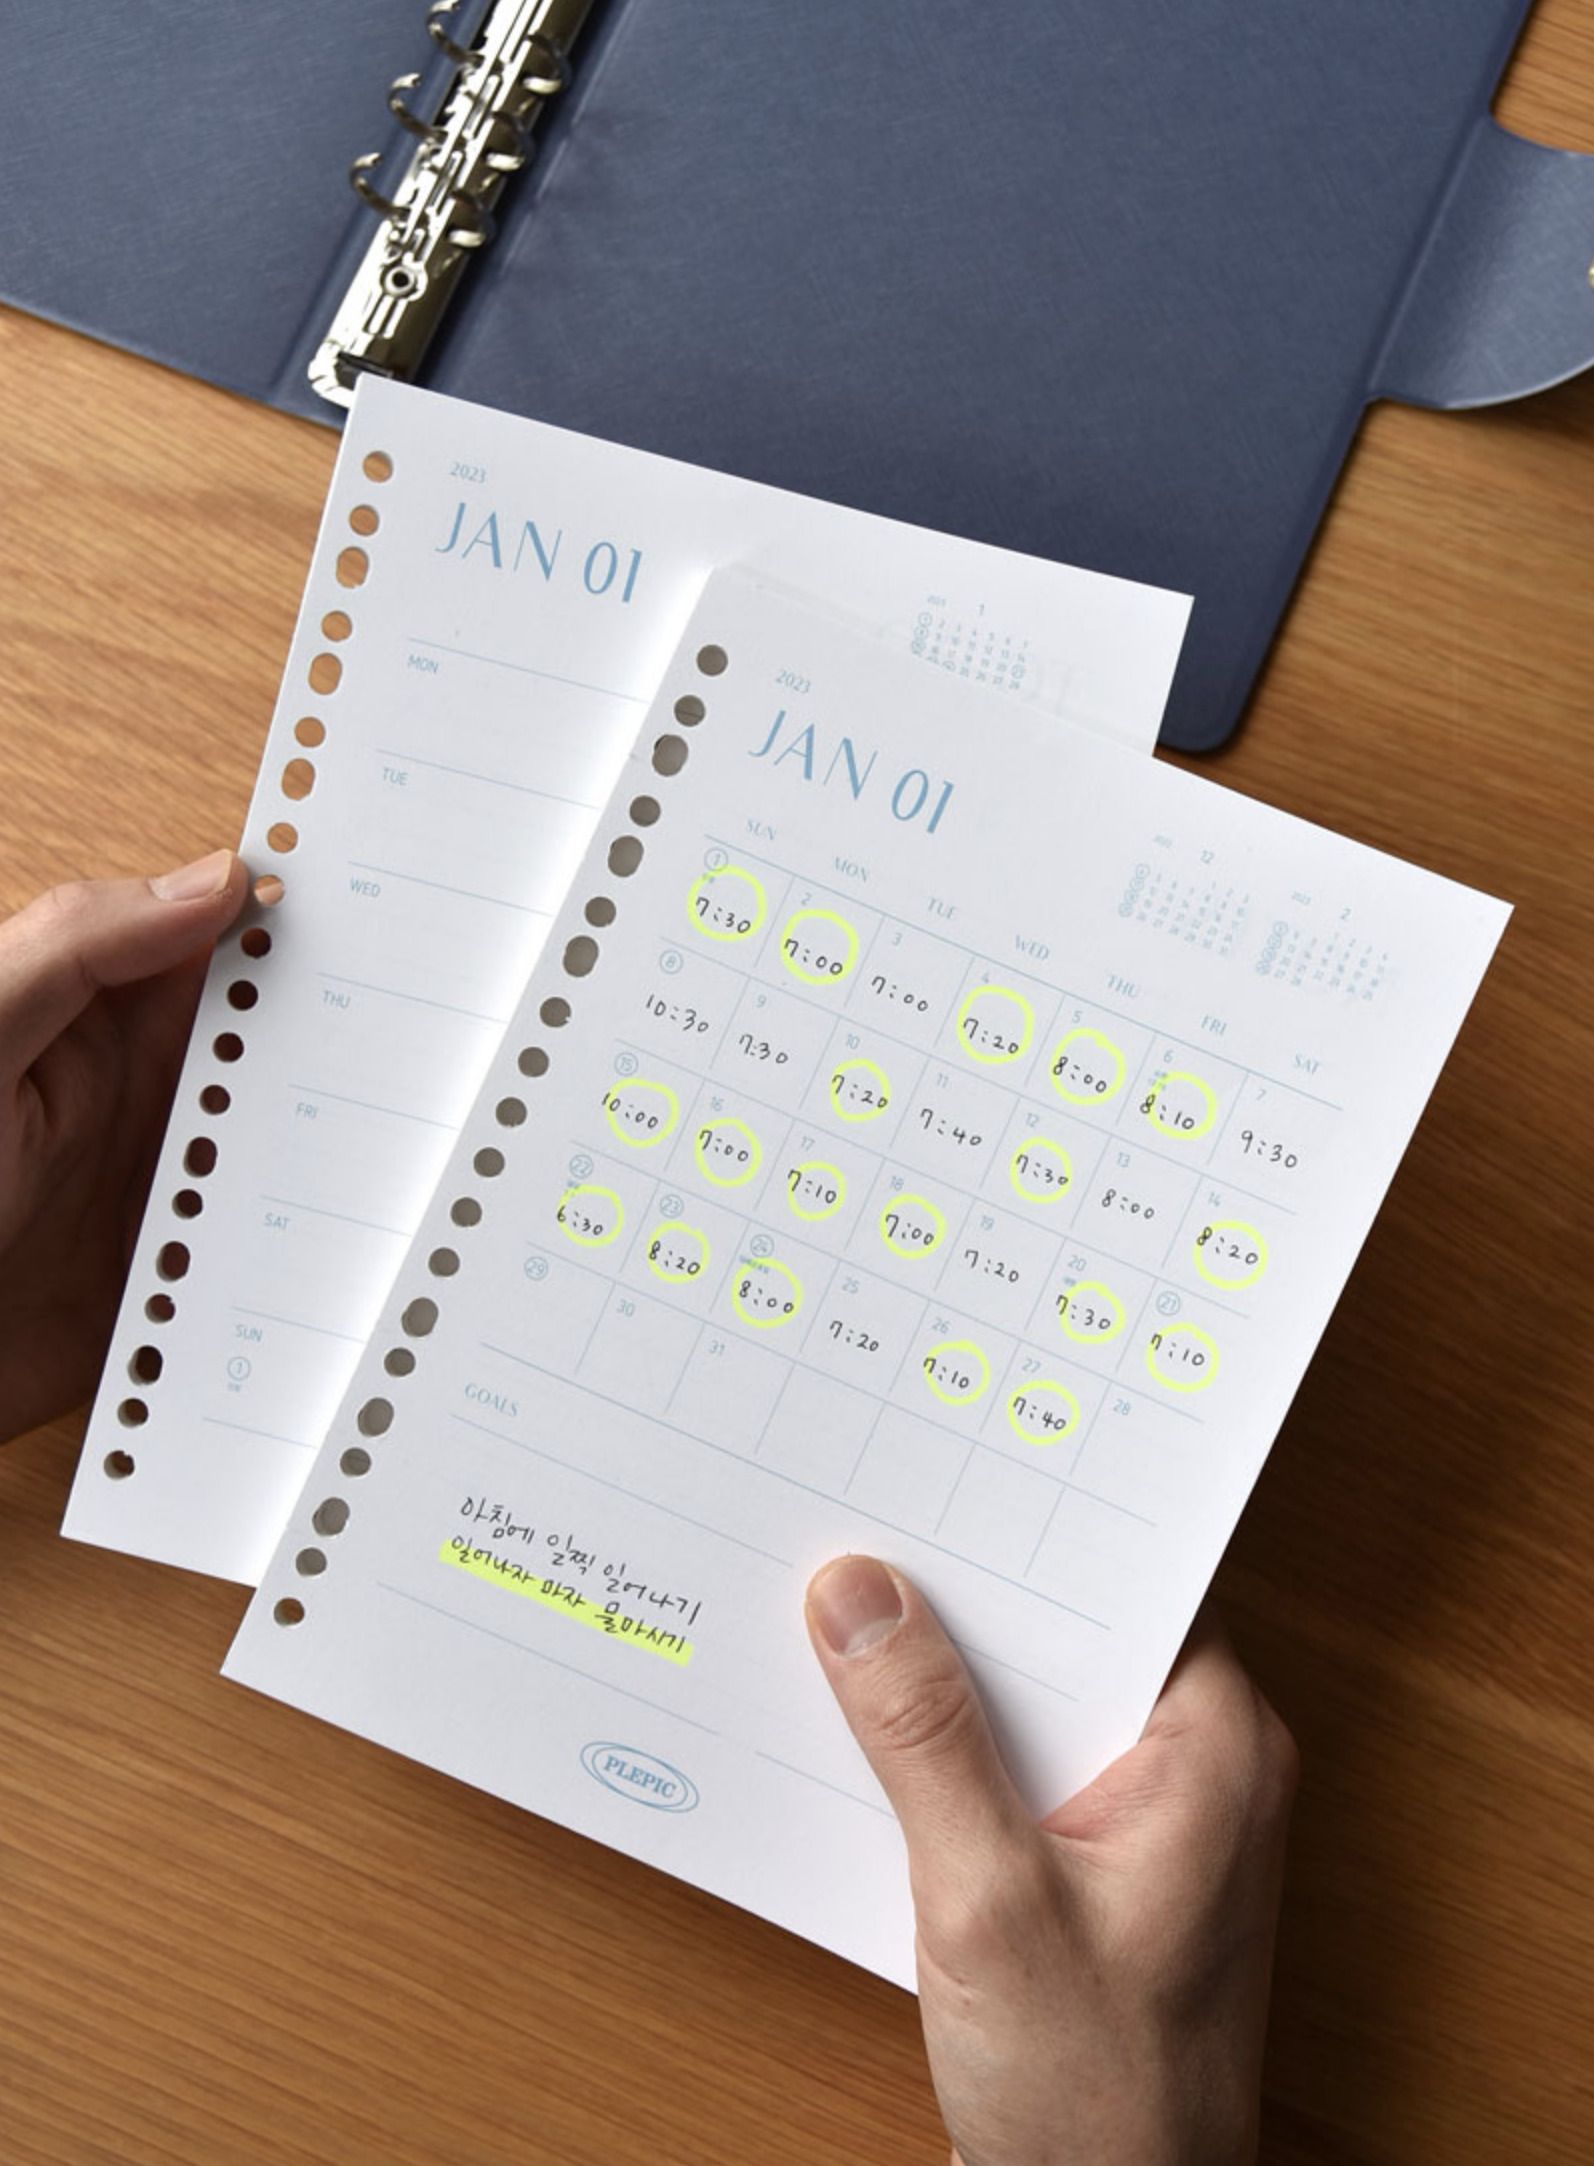 2023
JAN 01
MON
TUE
WED
THU
FRI
SAT
SUN
1
2023 1
2023
JAN 01
12
2023 2
SUN MON TUE WED THU FRI SAT
1 2 3 4 5 6 7
7:30 7:00 7:00 7:20 8:00 8:10 9:30
8 9 10 11 12 13 14
10:30 7:30 7:20 7:40 7:30 8:00 8:20
15 16 17 18 19 20 21
10:00 7:00 7:10 7:00 7:20 7:30 7:10
22 23 24 25 26 27 28
6:30 8:20 8:00 7:20 7:10 7:40
29 30 31
GOALS
아침에 일찍 일어나기
일어나자 마자 물마시기
PLEPIC